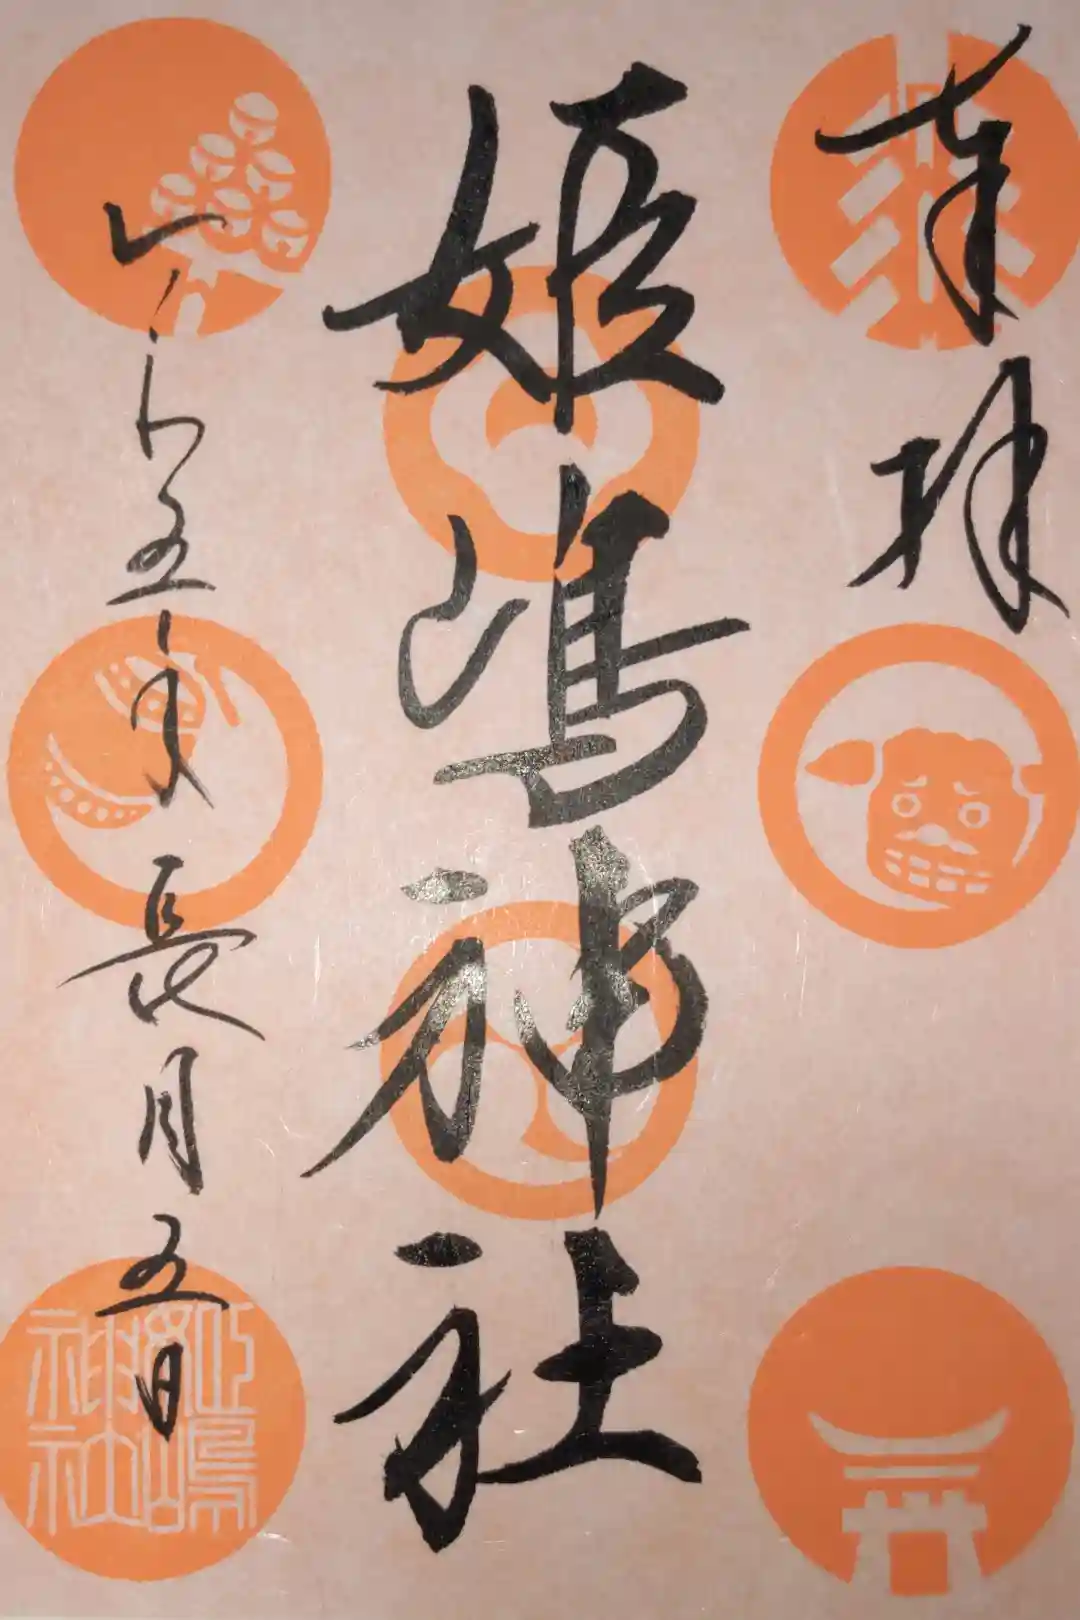 奉拝
姫嶋神社
令和五年長月五日
姫嶋
神社